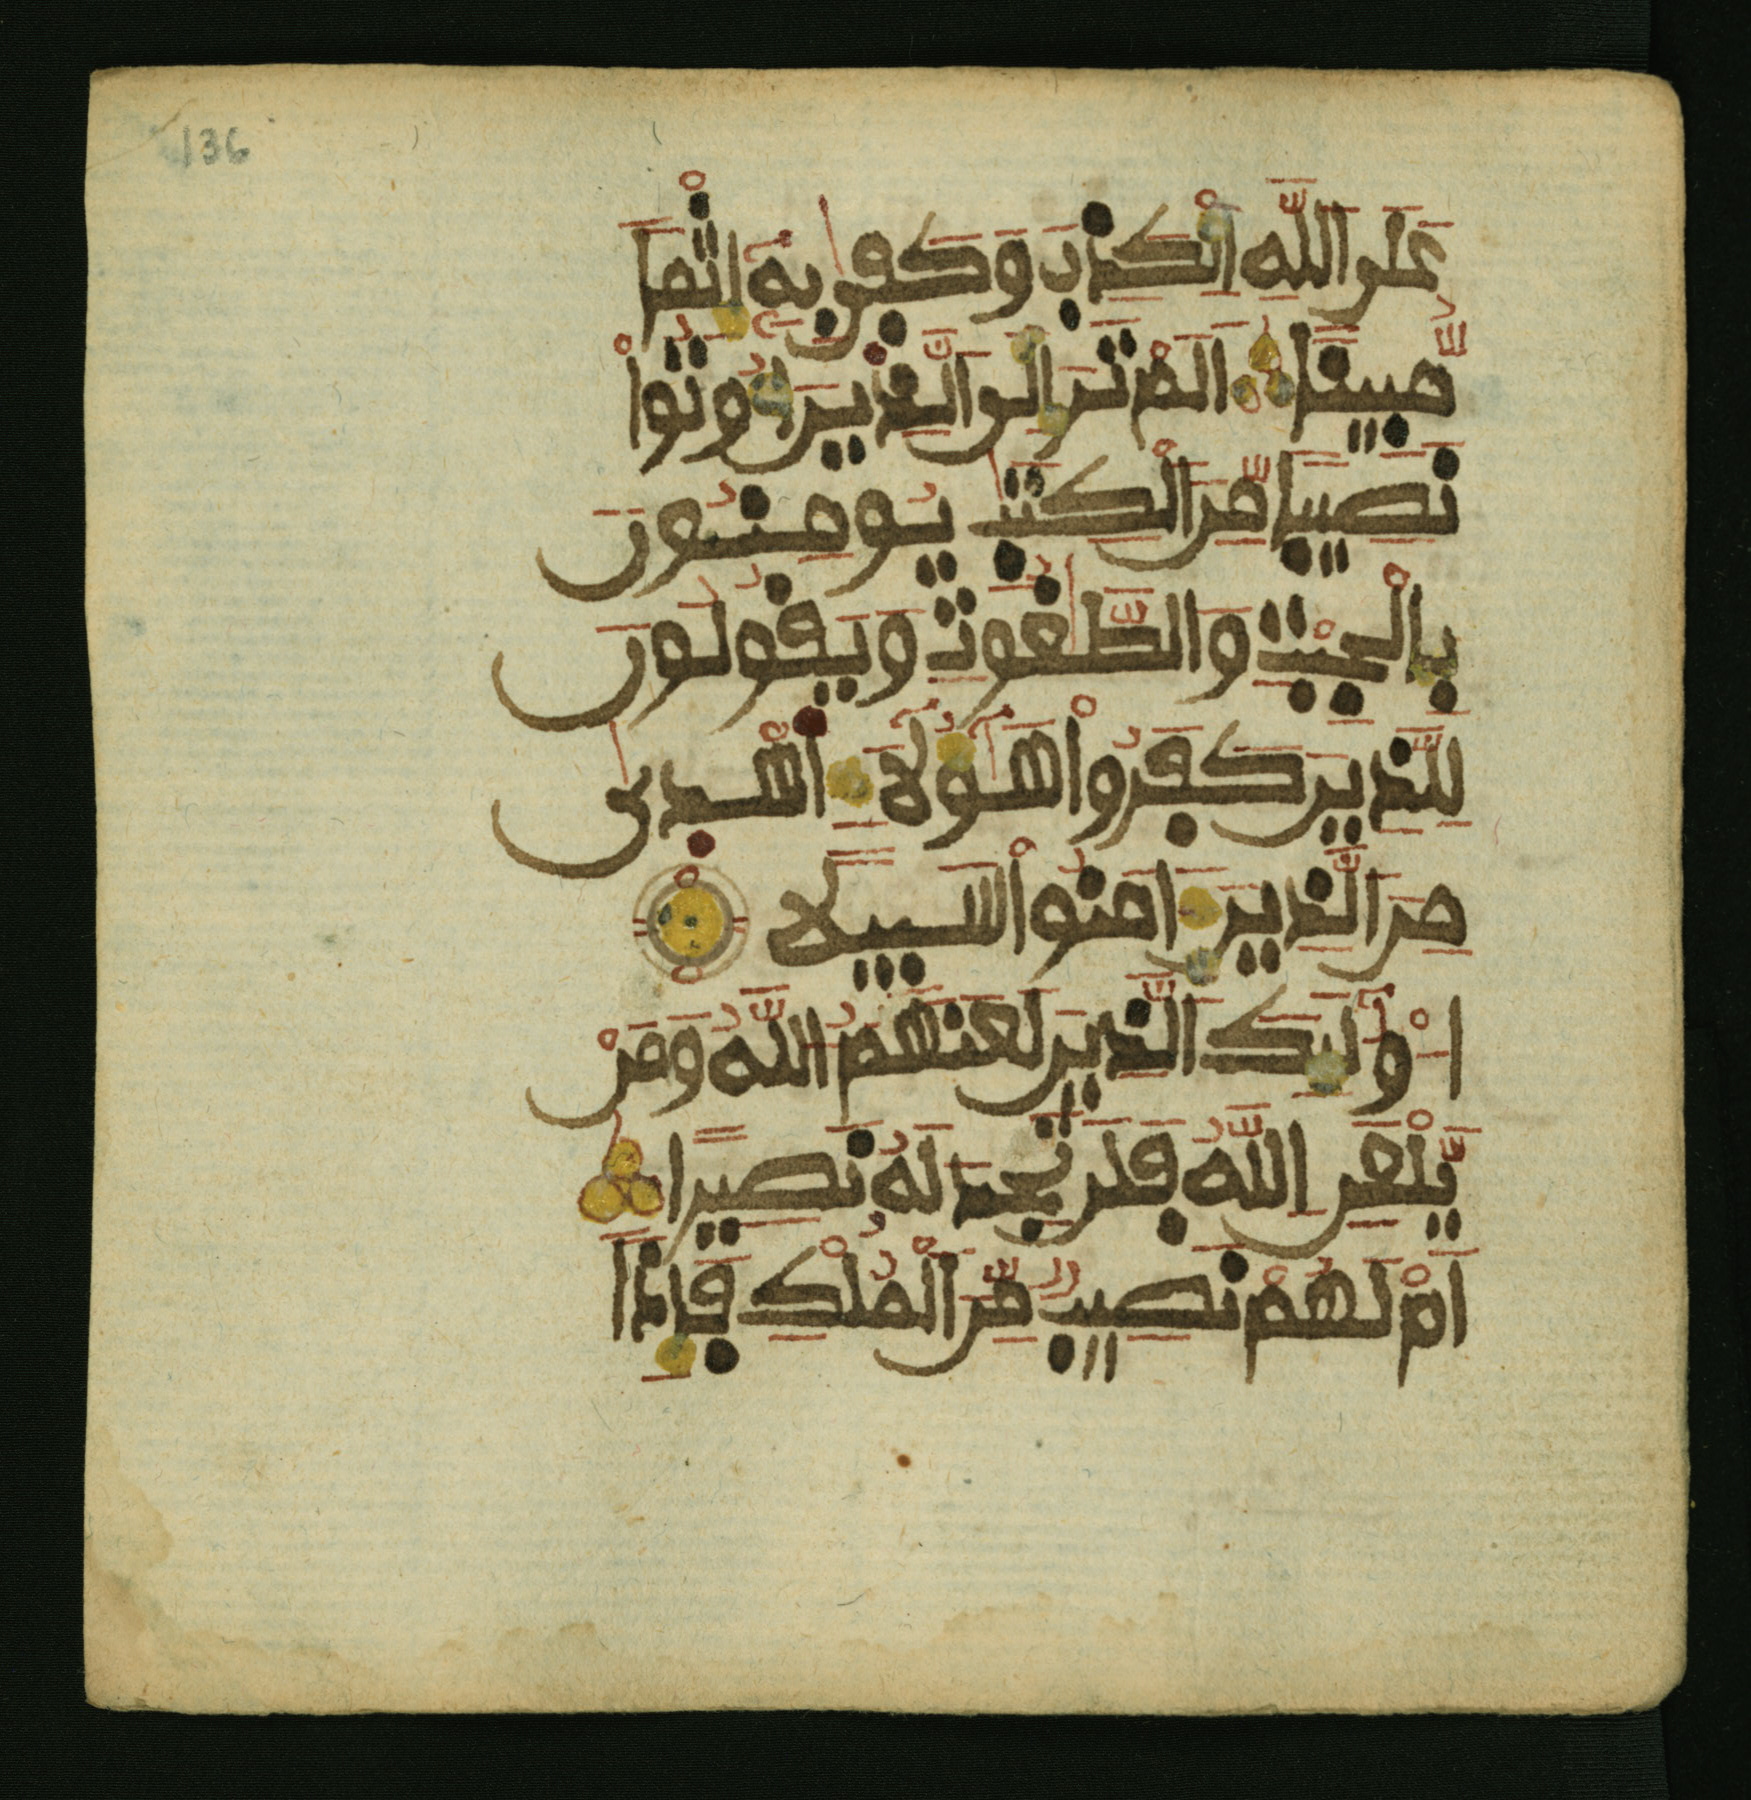 136
عَلَى اللَّهِ الْكَذِبَ وَكَفَىٰ بِهِ إِثْمًا
مُّبِينًا أَلَمْ تَرَ إِلَى الَّذِينَ أُوتُواْ
نَصِيبًا مِّنَ الْكِتَٰبِ يُومِنُونَ
بِالْجِبْتِ وَالطَّٰغُوتِ وَيَقُولُونَ
لِلَّذِينَ كَفَرُواْ هَٰؤُلَاءِ اهْدَىٰ
مِنَ الَّذِينَ ءَامَنُواْ سَبِيلًا
اوْلَٰئِكَ الَّذِينَ لَعَنَهُمُ اللَّهُ وَمَنْ
يَّلْعَنِ اللَّهُ فَلَن تَجِدَ لَهُ نَصِيرًا
أَمْ لَهُمْ نَصِيبٌ مِّنَ الْمُلْكِ فَإِذًا